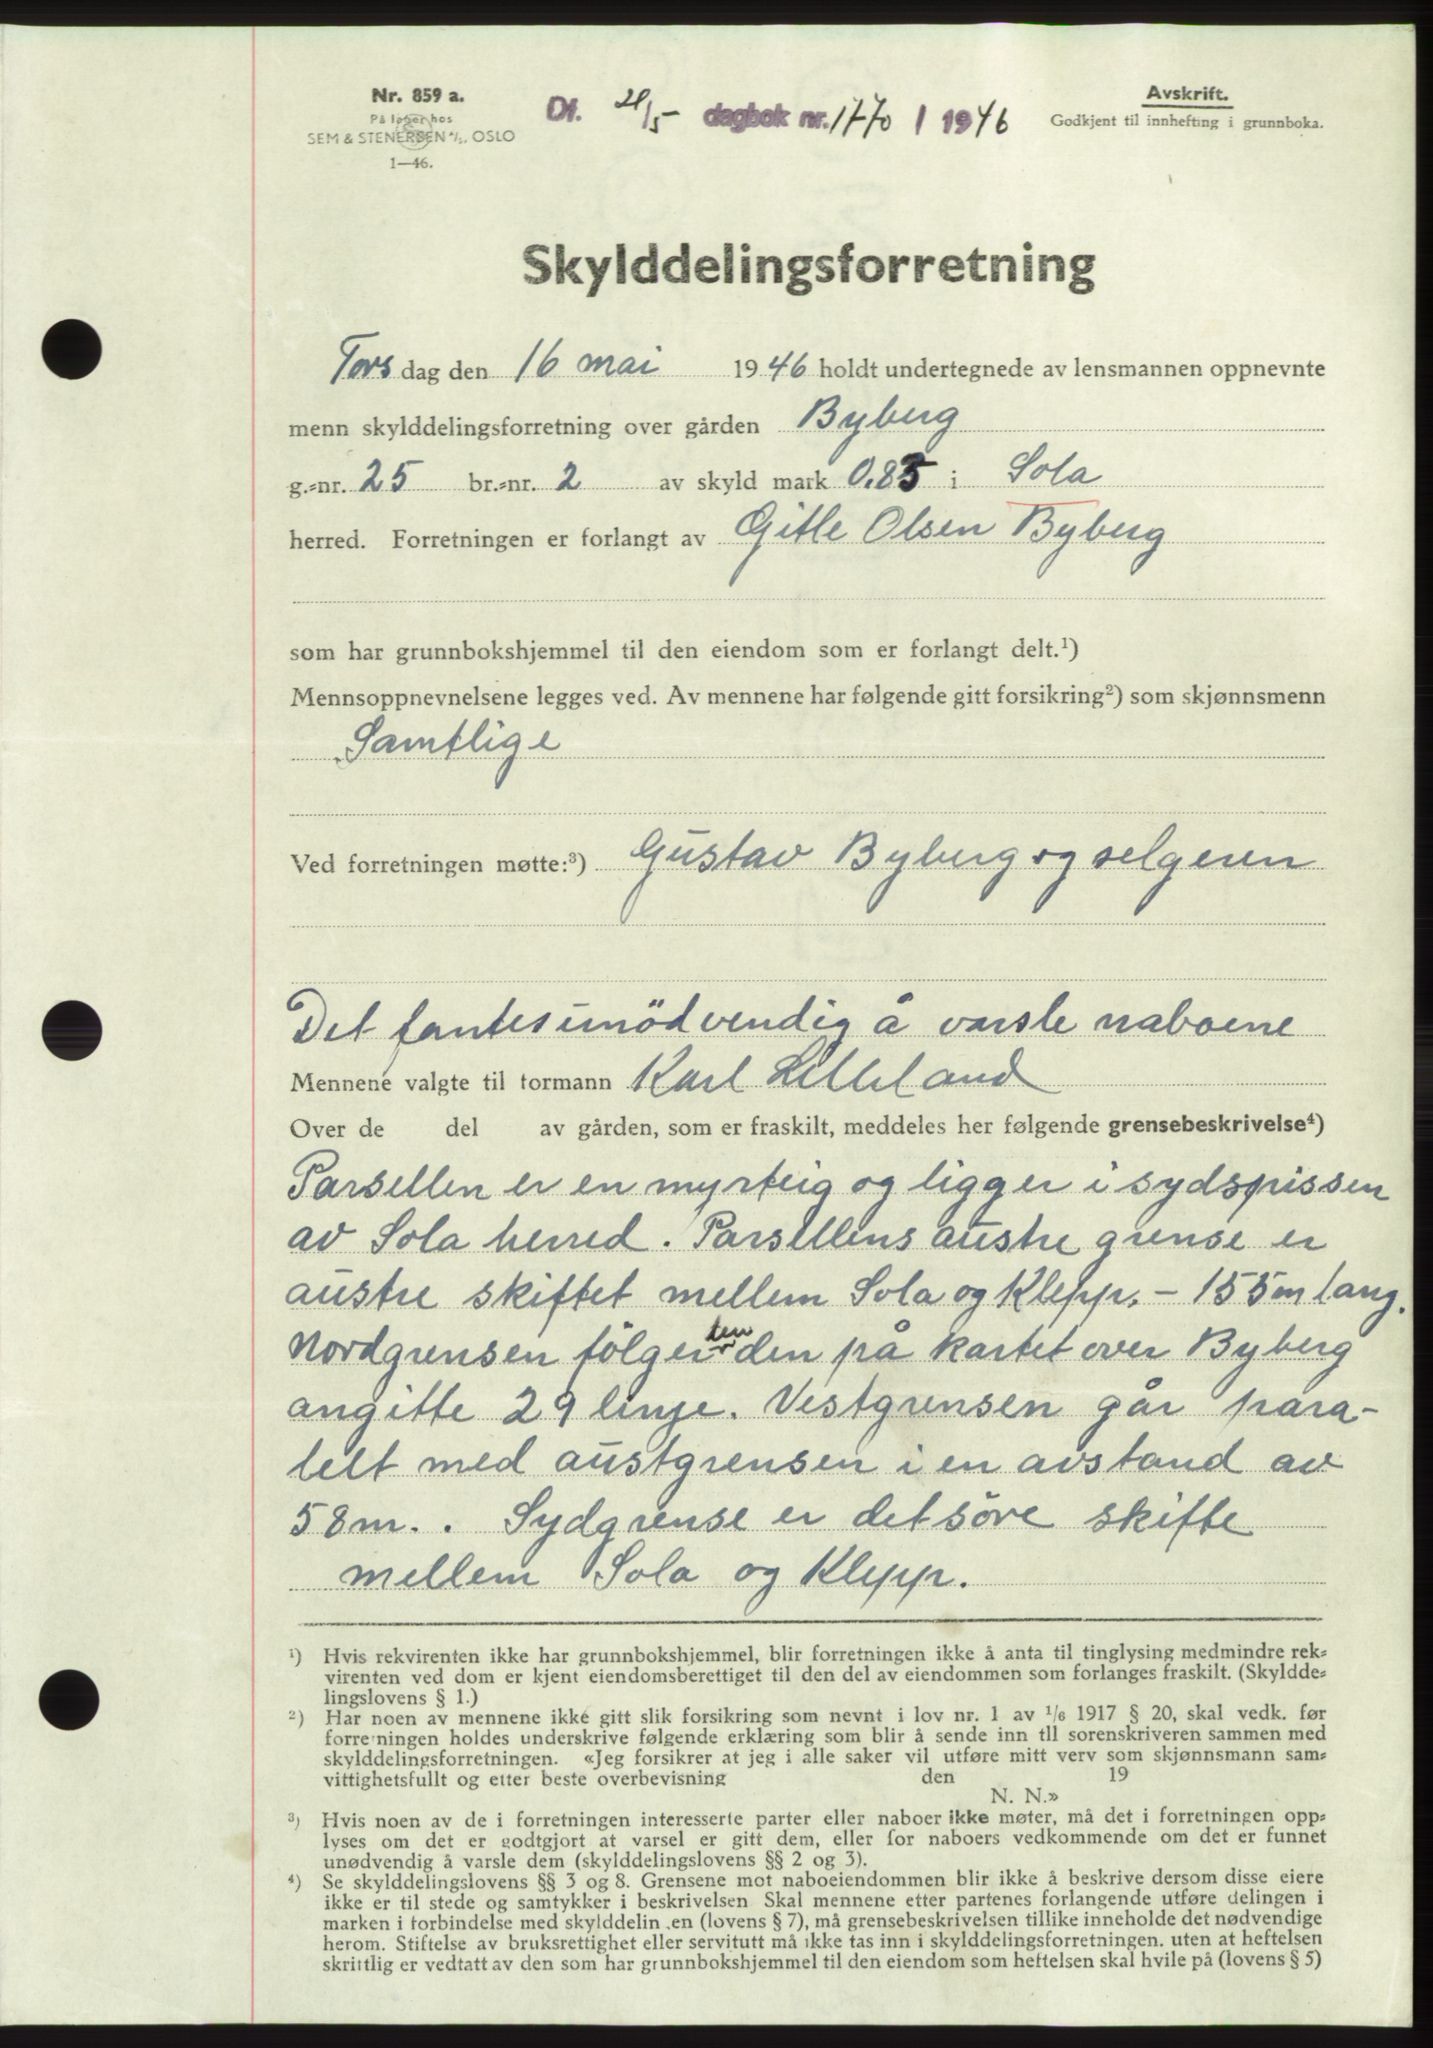 Nr. 859 a.
På lager hos
SEM & STENERSEN A/S, OSLO
1—46.
Df. 21/5 dagbok nr. 1770 / 1946
Avskrift.
Godkjent til innhefting i grunnboka.
Skylddelingsforretning
Torsdag den 16 mai 1946 holdt undertegnede av lensmannen oppnevnte
menn skylddelingsforretning over gården Byberg
g.=nr. 25 br.=nr. 2 av skyld mark 0.85 i Sola
herred. Forretningen er forlangt av Gitle Olsen Byberg
som har grunnbokshjemmel til den eiendom som er forlangt delt.¹)
Mennsoppnevnelsene legges ved. Av mennene har følgende gitt forsikring²) som skjønnsmenn
Samtlige
Ved forretningen møtte:³) Gustav Byberg og selgeren
Det fantes unödvendig å varsle naboene
Mennene valgte til formann Karl Lilleland
Over de del av gården, som er fraskilt, meddeles her følgende grensebeskrivelse⁴)
Parsellen er en myrteig og ligger i sydspissen
av Sola herred. Parsellens austre grense er
austre skiftet mellem Sola og Klepp. – 155 m lang.
Nordgrensen fölger den på kartet over Byberg
angitte 29 linje. Vestgrensen går para-
lelt med austgrensen i en avstand av
58 m.. Sydgrense er det söre skifte
mellem Sola og Klepp.
¹) Hvis rekvirenten ikke har grunnbokshjemmel, blir forretningen ikke å anta til tinglysing medmindre rek=
virenten ved dom er kjent eiendomsberettiget til den del av eiendommen som forlanges fraskilt. (Skyldde=
lingslovens § 1.)
²) Har noen av mennene ikke gitt slik forsikring som nevnt i lov nr. 1 av 1/6 1917 § 20, skal vedk. før
forretningen holdes underskrive følgende erklæring som blir å sende inn til sorenskriveren sammen med
skylddelingsforretningen. «Jeg forsikrer at jeg i alle saker vil utføre mitt verv som skjønnsmann sam=
vittighetsfullt og etter beste overbevisning den 19
N. N.»
³) Hvis noen av de i forretningen interesserte parter eller naboer ikke møter, må det i forretningen opp=
lyses om det er godtgjort at varsel er gitt dem, eller for naboers vedkommende om det er funnet
unødvendig å varsle dem (skylddelingslovens §§ 2 og 3).
⁴) Se skylddelingslovens §§ 3 og 8. Grensene mot naboeiendommen blir ikke å beskrive dersom disse eiere
ikke er til stede og samtykker i beskrivelsen Skal mennene etter partenes forlangende utføre delingen i
marken i forbindelse med skylddelin en (lovens § 7), må grensebeskrivelsen tillike inneholde det nødvendige
herom. Stiftelse av bruksrettighet eller servitutt må ikke tas inn i skylddelingsforretningen. uten at heftelsen
skriftlig er vedtatt av den som har grunnbokshjemmel til den eiendom som heftelsen skal hvile på (lovens § 5)